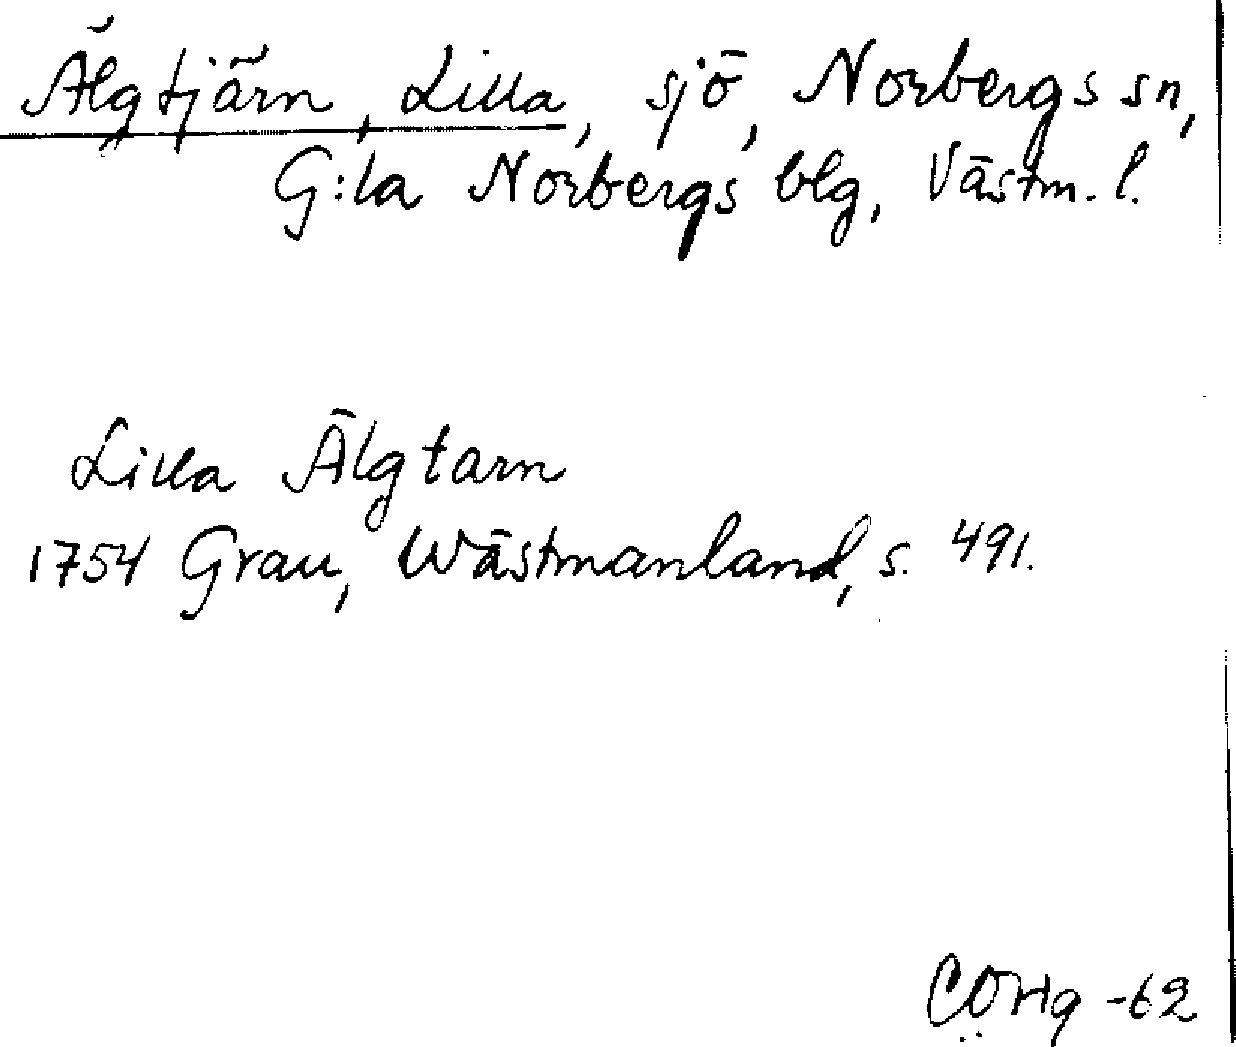 Älgtjärn, Lilla, sjö, Norbergs sn,
G:la Norbergs blg, Västm. l.
Lilla Älgtarn
1754 Grau, Wästmanland, s. 491.
-62